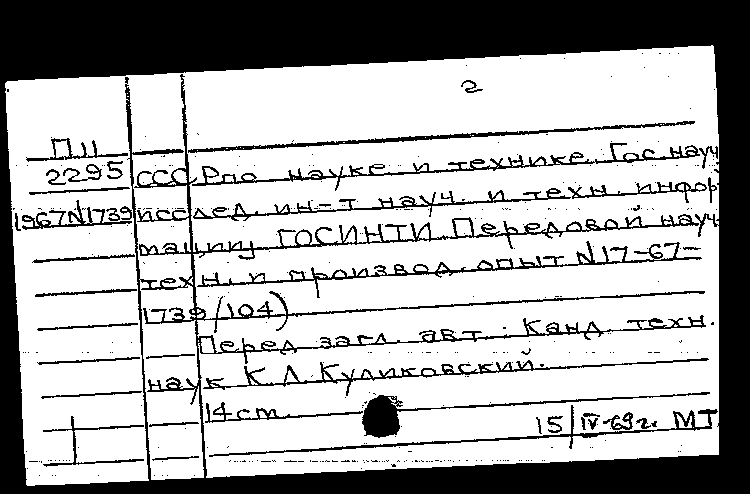 2
П11
2295 СССР по науке и технике. Гос. науч
1967 N1739 исслед. ин-т науч. и техн. инфор
мации ГОСИНТИ Передовой науч.
техн. и производ. опыт N17-67-
1739/104)
Перед загл. авт.: Канд. техн.
наук К.Л. Куликовский.
14 ст.
15/IV-69 г. МТ